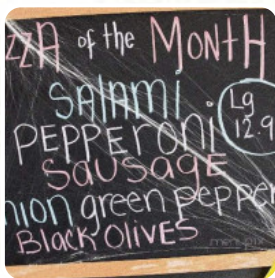 ZZA of the MONTH
SALAMI
Lg
12.9
PEPPERONI
SAUSAGE
nion green pepper
BLACK OLIVES